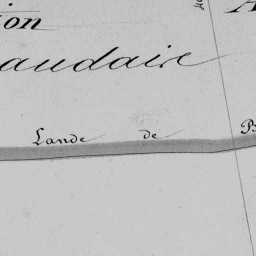 ion
audaire
Lande de